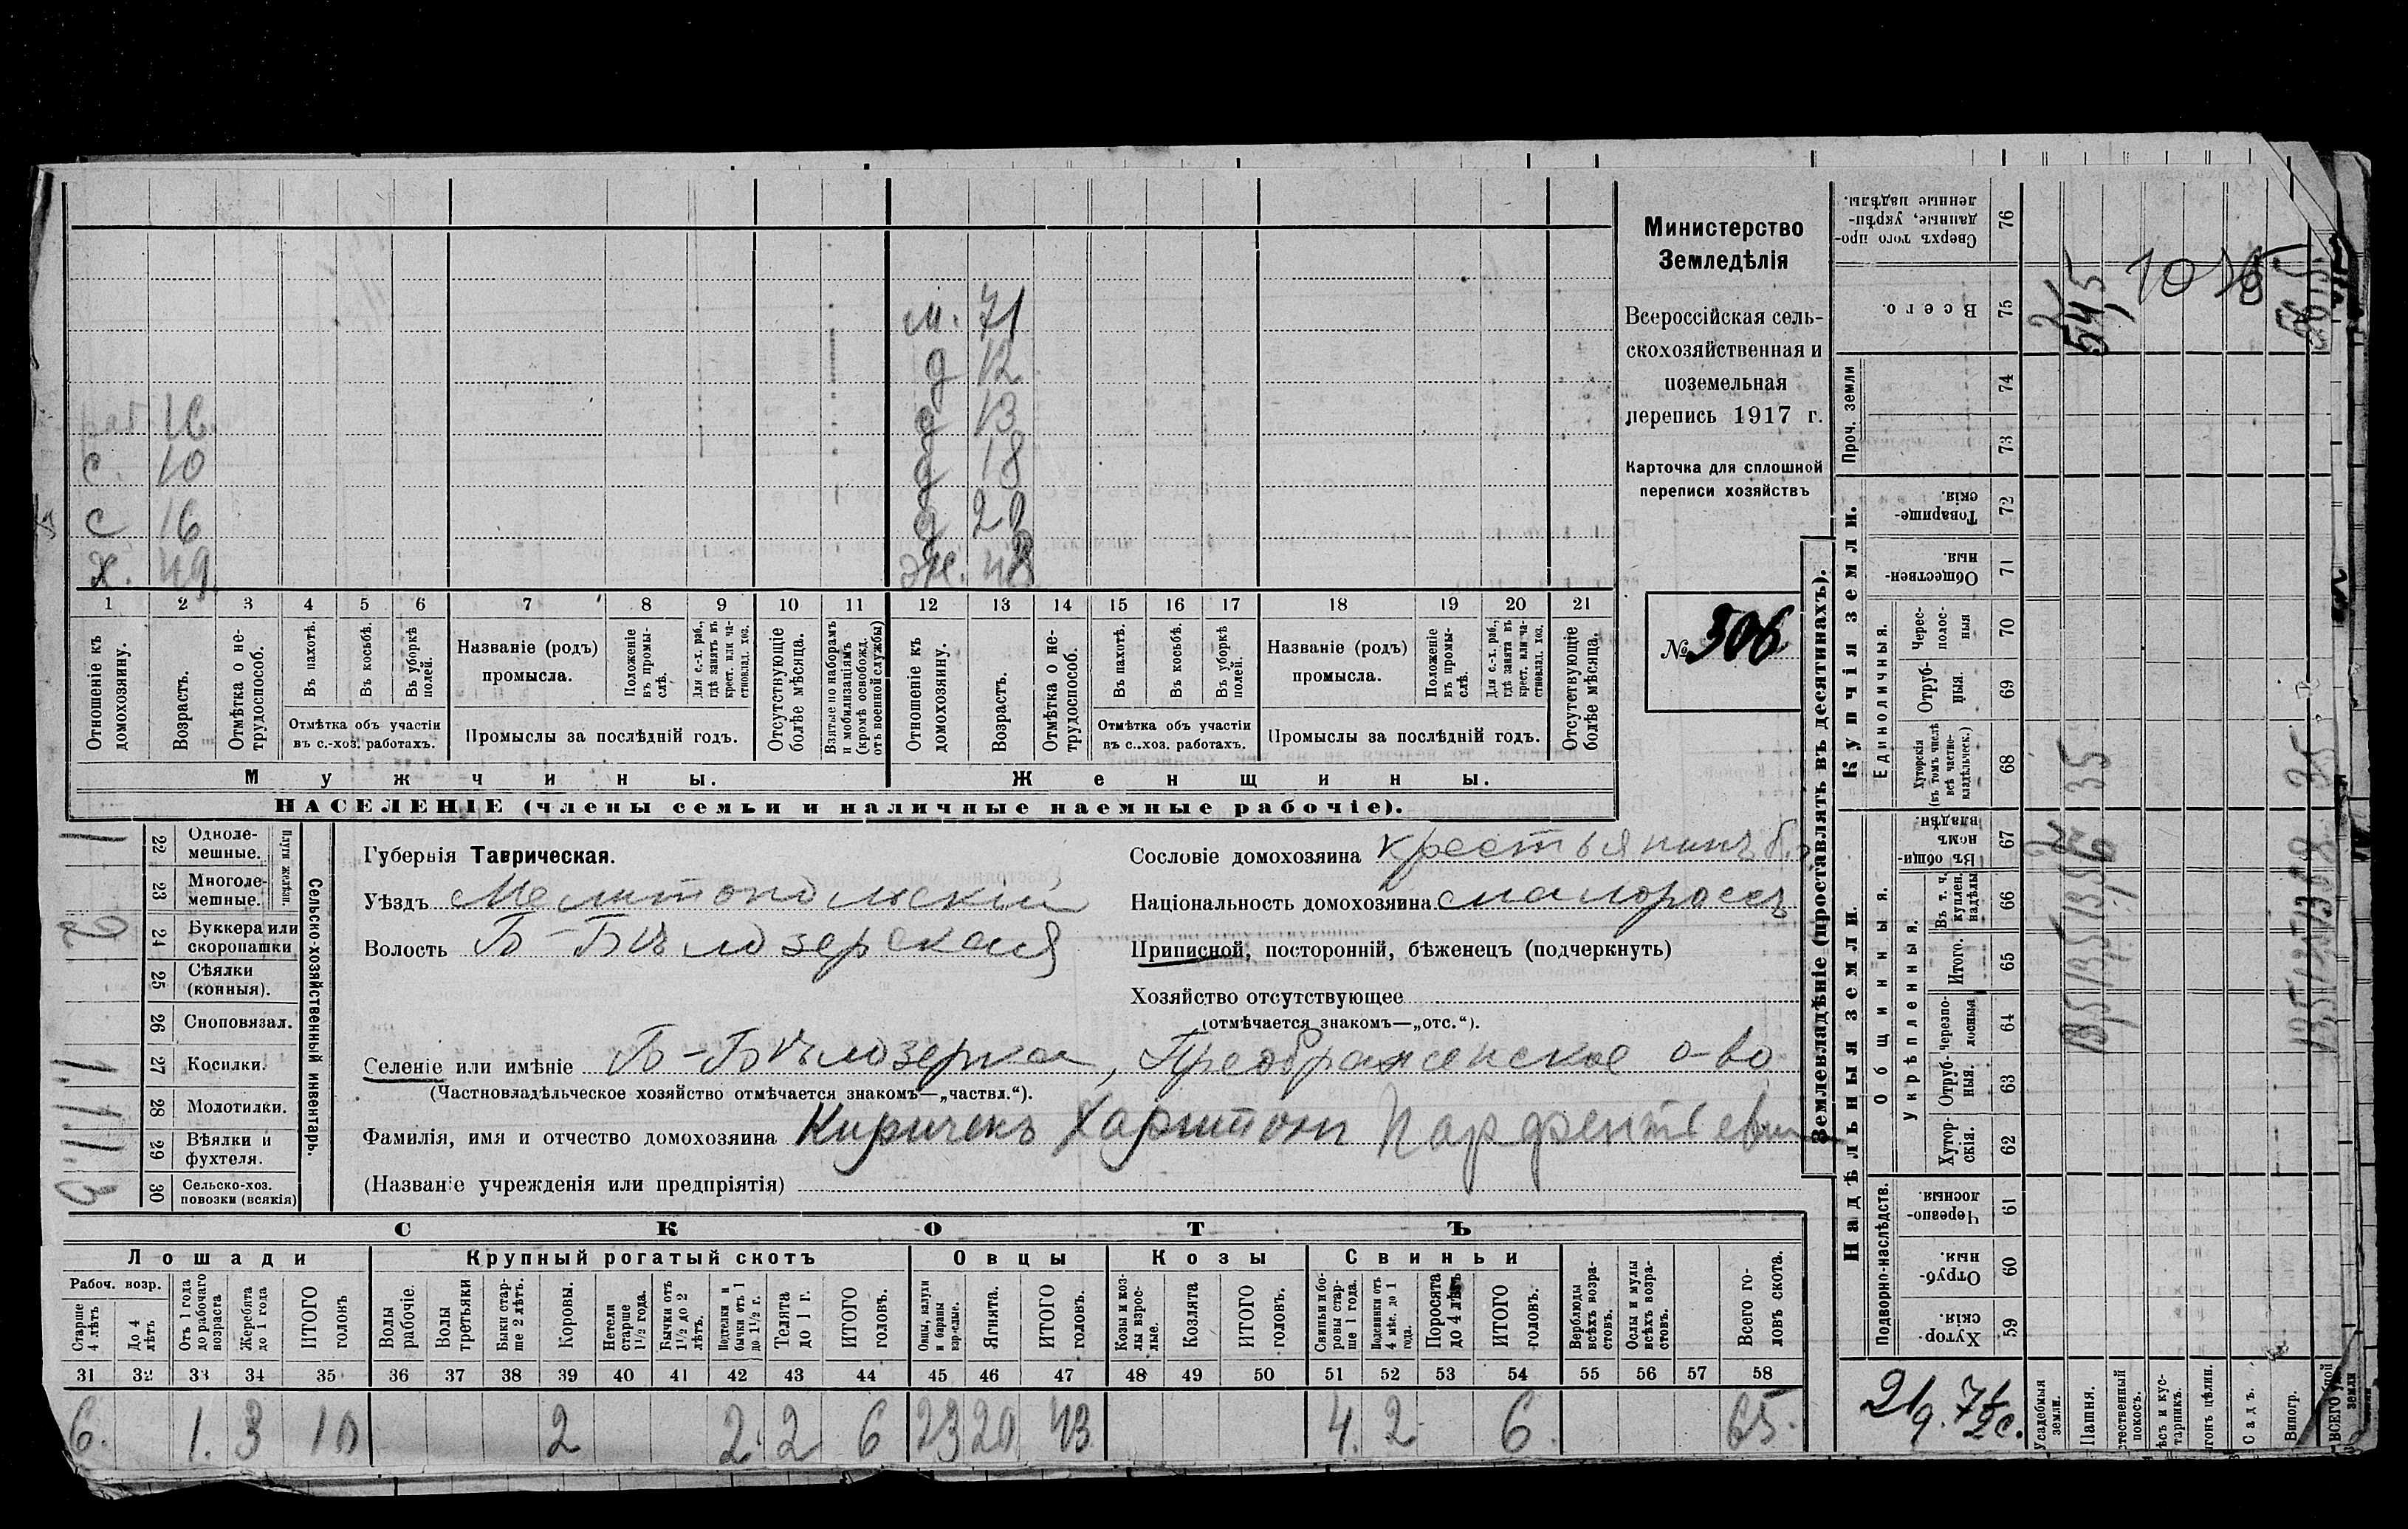 м. 71
д 12
раб. 16. д 13
с. 10 д 18
с 16 д 20
х. 49 ж. 48
1 2 3 4 5 6 7 8 9 10 11 12 13 14 15 16 17 18 19 20 21
Отношеніе къ домохозяину.
Возрастъ.
Отмѣтка о не-трудоспособ.
Въ пахотѣ.
Въ косьбѣ.
Въ уборкѣ полей.
Отмѣтка объ участіи
въ с.-хоз. работахъ.
Названіе (родъ)
промысла.
Положеніе въ промы-слѣ.
Для с.-х. раб., гдѣ занятъ въ крест. или ча-стновлад. хоз.
Промыслы за послѣдній годъ.
Отсутствующіе болѣе мѣсяца.
Взятые по наборамъ и мобилизаціямъ (кромѣ освобожд. отъ военной службы)
Отношеніе къ домохозяину.
Возрастъ.
Отмѣтка о не-трудоспособ.
Въ пахотѣ.
Въ косьбѣ.
Въ уборкѣ полей.
Отмѣтка объ участіи
въ с..хоз. работахъ.
Названіе (родъ)
промысла.
Положеніе въ промы-слѣ.
Для с.-х. раб., гдѣ занята въ крест. или ча-стновлад. хоз.
Промыслы за послѣдній годъ.
Отсутствующіе болѣе мѣсяца.
Мужчины. Женщины.
НАСЕЛЕНІЕ (члены семьи и наличные наемные рабочіе).
Министерство
Земледѣлія
Всероссійская сель-
скохозяйственная и
поземельная
перепись 1917 г.
Карточка для сплошной
переписи хозяйствъ
№ 306
1 22 Одноле-мешные.
23 Многоле-мешные.
Плуги желѣзн.
2 24 Буккера или скоропашки
25 Сѣялки (конныя).
26 Сноповязал.
1 27 Косилки.
1 28 Молотилки.
1 29 Вѣялки и фухтеля.
3 30 Сельско-хоз. повозки (всякія)
Сельско-хозяйственный инвентарь.
Губернія Таврическая.
Уѣздъ Мелитопольскій
Волость Б-Бѣлозерская
Селеніе или имѣніе Б-Бѣлозерка, Преображенское о-во
(Частновладѣльческое хозяйство отмѣчается знакомъ—„частвл.“).
Фамилія, имя и отчество домохозяина Киричекъ Харитон Парфентіевич
(Названіе учрежденія или предпріятія)
Сословіе домохозяина крестьянинъ
Національность домохозяина малороссъ
Приписной, посторонній, бѣженецъ (подчеркнуть)
Хозяйство отсутствующее
(отмѣчается знакомъ—„отс.“).
СКОТЪ
Лошади Крупный рогатый скотъ Овцы Козы Свиньи
Рабоч. возр.
Старше 4 лѣтъ
До 4 лѣтъ
Отъ 1 года до рабочаго возраста
Жеребята до 1 года
ИТОГО головъ
Волы рабочіе.
Волы третьяки
Быки стар-ше 2 лѣтъ.
Коровы.
Нетели старше 1½ года.
Бычки отъ 1½ до 2 лѣтъ.
Подтелки и бычки отъ 1 до 1½ г.
Телята до 1 г.
ИТОГО головъ.
Овцы, валухи и бараны взрослые.
Ягнята.
ИТОГО головъ.
Козы и коз-лы взрос-лые.
Козлята
ИТОГО головъ.
Свиньи и бо-ровы стар-ше 1 года.
Подсвинки отъ 4 мѣс. до 1 года.
Поросята до 4
ИТОГО головъ.
Верблюды всѣхъ возра-стовъ.
Ослы и мулы всѣхъ возра-стовъ.
Всего го-ловъ скота.
31 32 33 34 35 36 37 38 39 40 41 42 43 44 45 46 47 48 49 50 51 52 53 54 55 56 57 58
6. 1. 3 10 2 2 2 6 23 20 43 4. 2 6. 65.
Землевладѣніе (проставлять въ десятинахъ).
Надѣльныя земли. Купчія земли.
Подворно-наслѣдств.
Общинныя.
Укрѣпленныя.
Единоличныя.
Проч. земли
Хутор-скія. 59
Отруб-ныя. 60
Черезпо-лосныя 61
Хутор-скія. 62
Отруб-ныя. 63
Черезпо-лосныя 64
Итого. 65
Въ т. ч. куплен. надѣлы 66
Въ общи-номъ владѣн. 67
Хуторскія (въ томъ числѣ всѣ частно-владѣльческ.) 68
Отруб-ныя. 69
Черес-полос-ныя 70
Обществен-ныя 71
Товарище-скія. 72
73
74
Всего. 75
Сверхъ того про-данные, укрѣп-ленные надѣлы. 76
Усадебныя земли.
Пашня.
Садъ.
Виногр.
2 2
13,5 13,5 13,5 6 35 54,5
10
35